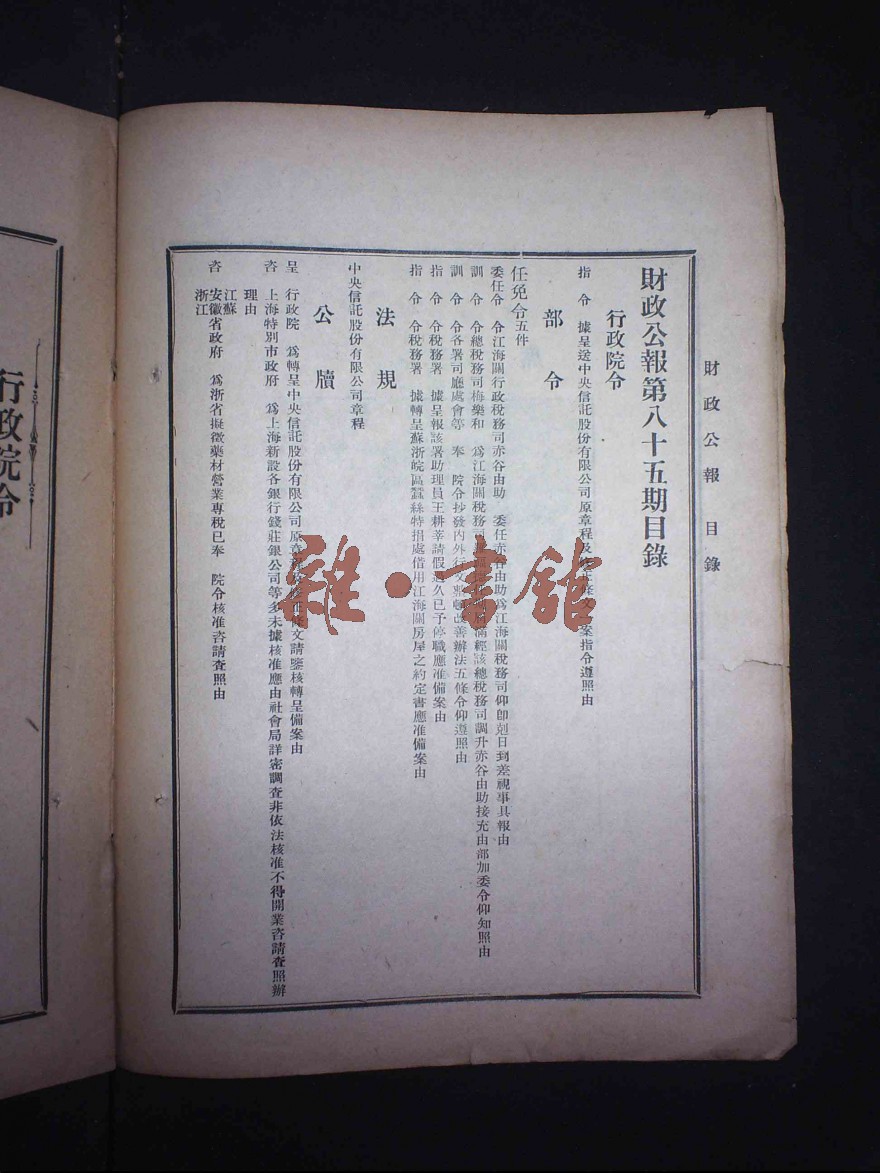 財政公報 目錄
財政公報第八十五期目錄
行政院令
指令 據呈送中央信託股份有限公司原章程及修正條文 案指令遵照由
部令
任免令五件
委任令 令江海關行政稅務司赤谷由助 委任赤谷由助爲江海關稅務司仰卽剋日到差視事具報由
訓令 令總稅務司梅樂和 爲江海關稅務司 滿經該總稅務司調升赤谷由助接充由部加委令仰知照由
訓令 令各署司廳處會等 奉 院令抄發內外行文整頓改善辦法五條令仰遵照由
指令 令稅務署 據呈報該署助理員王耕莘請假過久已予停職應准備案由
指令 令稅務署 據轉呈蘇浙皖區蠶絲特捐處借用江海關房屋之約定書應准備案由
法規
中央信託股份有限公司章程
公牘
呈 行政院 爲轉呈中央信託股份有限公司原章程及修正條文請鑒核轉呈備案由
咨 上海特別市政府 爲上海新設各銀行錢莊銀公司等多未據核准應由社會局詳密調查非依法核准不得開業咨請查照辦
理由
咨 江蘇安徽浙江省政府 爲浙省擬徵藥材營業專稅已奉 院令核准咨請查照由
行政院令
雜·書館